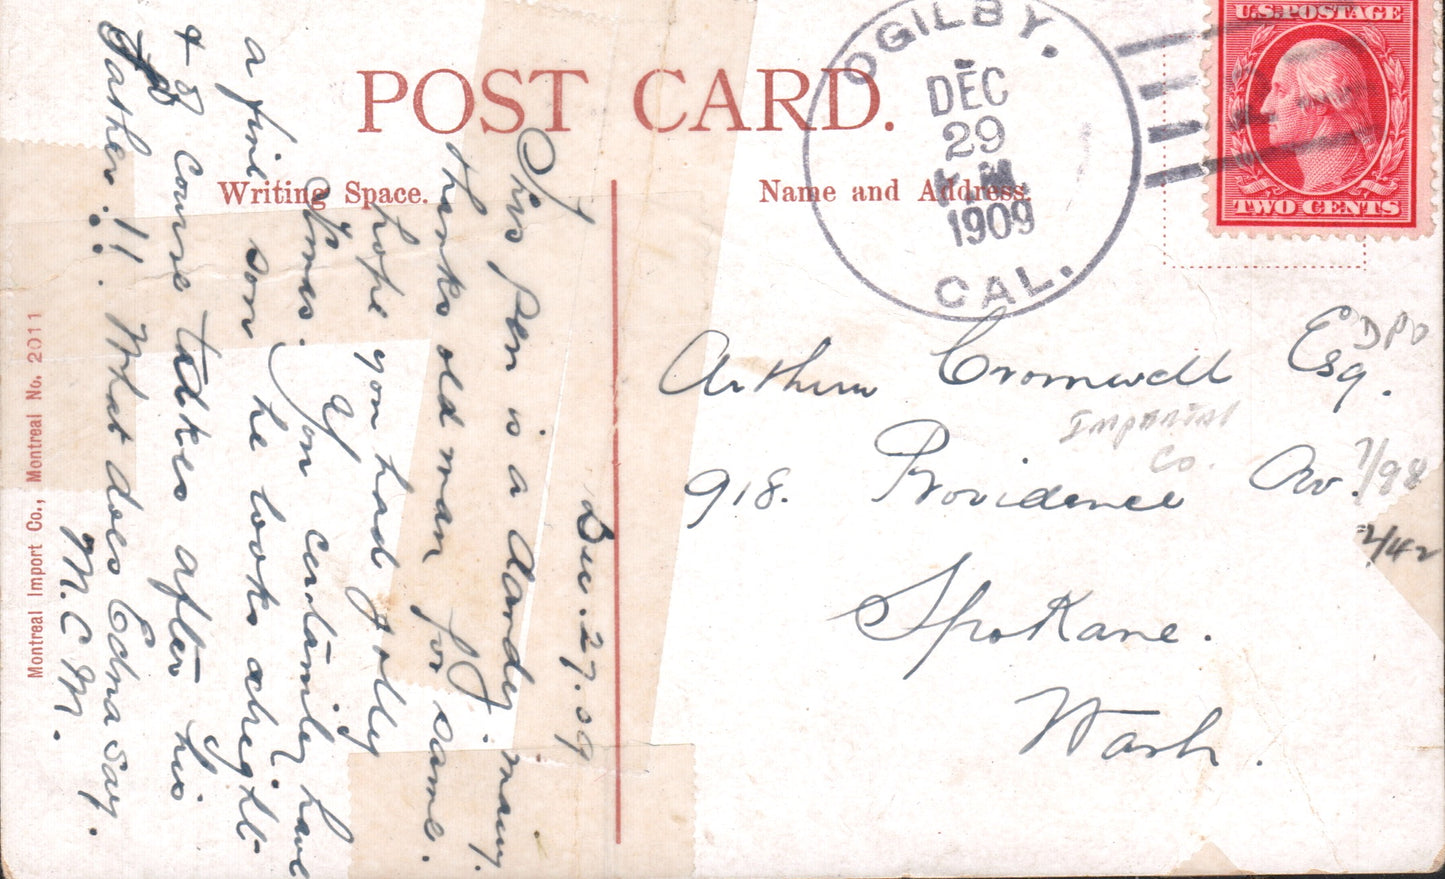 POST CARD.
Writing Space.
Name and Address.
OGILBY.
DEC
29
1909
CAL.
U.S. POSTAGE
TWO CENTS
Dec. 27. 09
This pen is a dandy. many.
thanks old man for same.
hope you had a jolly
Xmas. You certainly have
a fine son he looks alright
& I course takes after his
Father!! What does Edna say.
M.C.M.
Arthur Cromwell Esq.
918. Providence Av.
Spokane.
Wash.
DPO
Imperial
Co.
7/98
2/42
Montreal Import Co., Montreal No. 2011